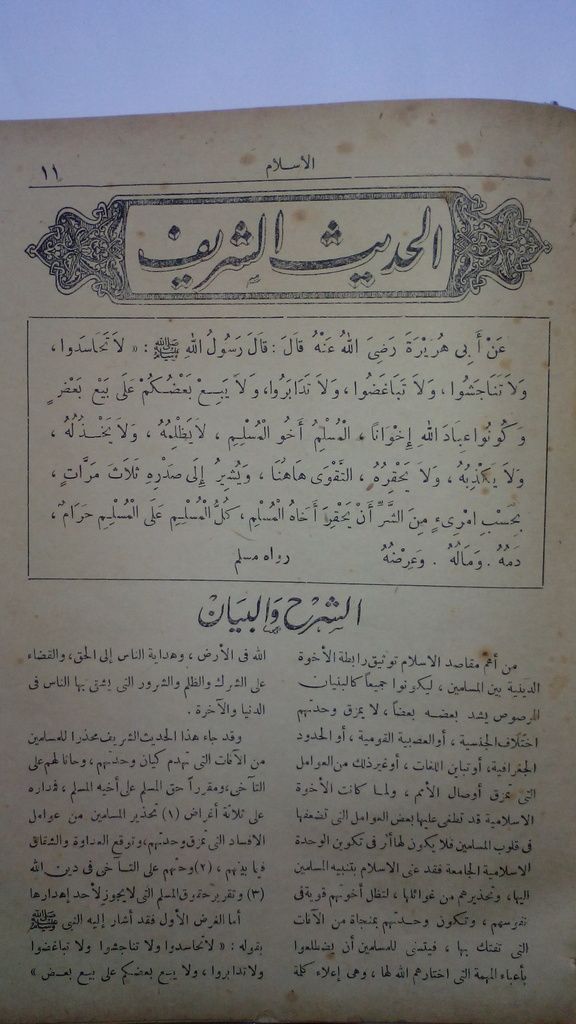 ١١
الاسلام
الحديث الشريف
عَنْ أَبِى هُرَيْرَةَ رَضِىَ اللهُ عَنْهُ قَالَ : قَالَ رَسُولُ اللهِ ﷺ : « لَا تَحَاسَدُوا ،
وَلَا تَنَاجَشُوا ، وَلَا تَبَاغَضُوا ، وَلَا تَدَابَرُوا ، وَلَا يَبِعْ بَعْضُكُمْ عَلَى بَيْعِ بَعْضٍ
وَكُونُوا عِبَادَ اللهِ إِخْوَانًا ، الْمُسْلِمُ أَخُو الْمُسْلِمِ ، لَا يَظْلِمُهُ ، وَلَا يَخْذُلُهُ ،
وَلَا يَكْذِبُهُ ، وَلَا يَحْقِرُهُ ، التَّقْوَى هَاهُنَا ، وَيُشِيرُ إِلَى صَدْرِهِ ثَلَاثَ مَرَّاتٍ ،
بِحَسْبِ امْرِىءٍ مِنَ الشَّرِّ أَنْ يَحْقِرَ أَخَاهُ الْمُسْلِمَ ، كُلُّ الْمُسْلِمِ عَلَى الْمُسْلِمِ حَرَامٌ ،
دَمُهُ . وَمَالُهُ . وَعِرْضُهُ رواه مسلم
الشرح والبيان
من أهم مقاصد الاسلام توثيق رابطة الأخوة
الدينية بين المسلمين ، ليكونوا جميعاً كالبنيان
المرصوص يشد بعضه بعضاً ، لا يمزق وحدتهم
اختلاف الجنسية ، أو العصبية القومية ، أو الحدود
الجغرافية، أو تباين اللغات ، أو غير ذلك من العوامل
التى تمزق أوصال الأمم ، ولما كانت الأخوة
الاسلامية قد تطغى عليها بعض العوامل التى تضعفها
فى قلوب المسلمين فلا يكون لها أثر فى تكوين الوحدة
الاسلامية الجامعة فقد عنى الاسلام بتنبيه المسلمين
اليها، وتحذيرهم من غوائلها ، لتظل أخوتهم قوية فى
نفوسهم ، وتكون وحدتهم بمنجاة من الآفات
التى تفتك بها ، فيتسنى للمسلمين أن يضطلعوا
بأعباء المهمة التى اختارهم الله لها ، وهى إعلاء كلمة
الله فى الأرض ، وهداية الناس إلى الحق، والقضاء
على الشرك والظلم والشرور التى يشقى بها الناس فى
الدنيا والآخرة .
وقد جاء هذا الحديث الشريف محذرا للمسلمين
من الآفات التى تهدم كيان وحدتهم ، وحاثا لهم على
التآخى، ومقررا حق المسلم على أخيه المسلم ، فمداره
على ثلاثة أغراض (١) تحذير المسلمين من عوامل
الافساد التى تمزق وحدتهم، وتوقع العداوة والشقاق
فيما بينهم ، (٢) وحثهم على التآخى فى دين الله
(٣) وتقرير حقوق المسلم التى لا يجوز لأحد إهدارها
أما الغرض الأول فقد أشار إليه النبى ﷺ
بقوله : « لا تحاسدوا ولا تناجشوا ولا تباغضوا
ولا تدابروا ، ولا يبع بعضكم على بيع بعض »